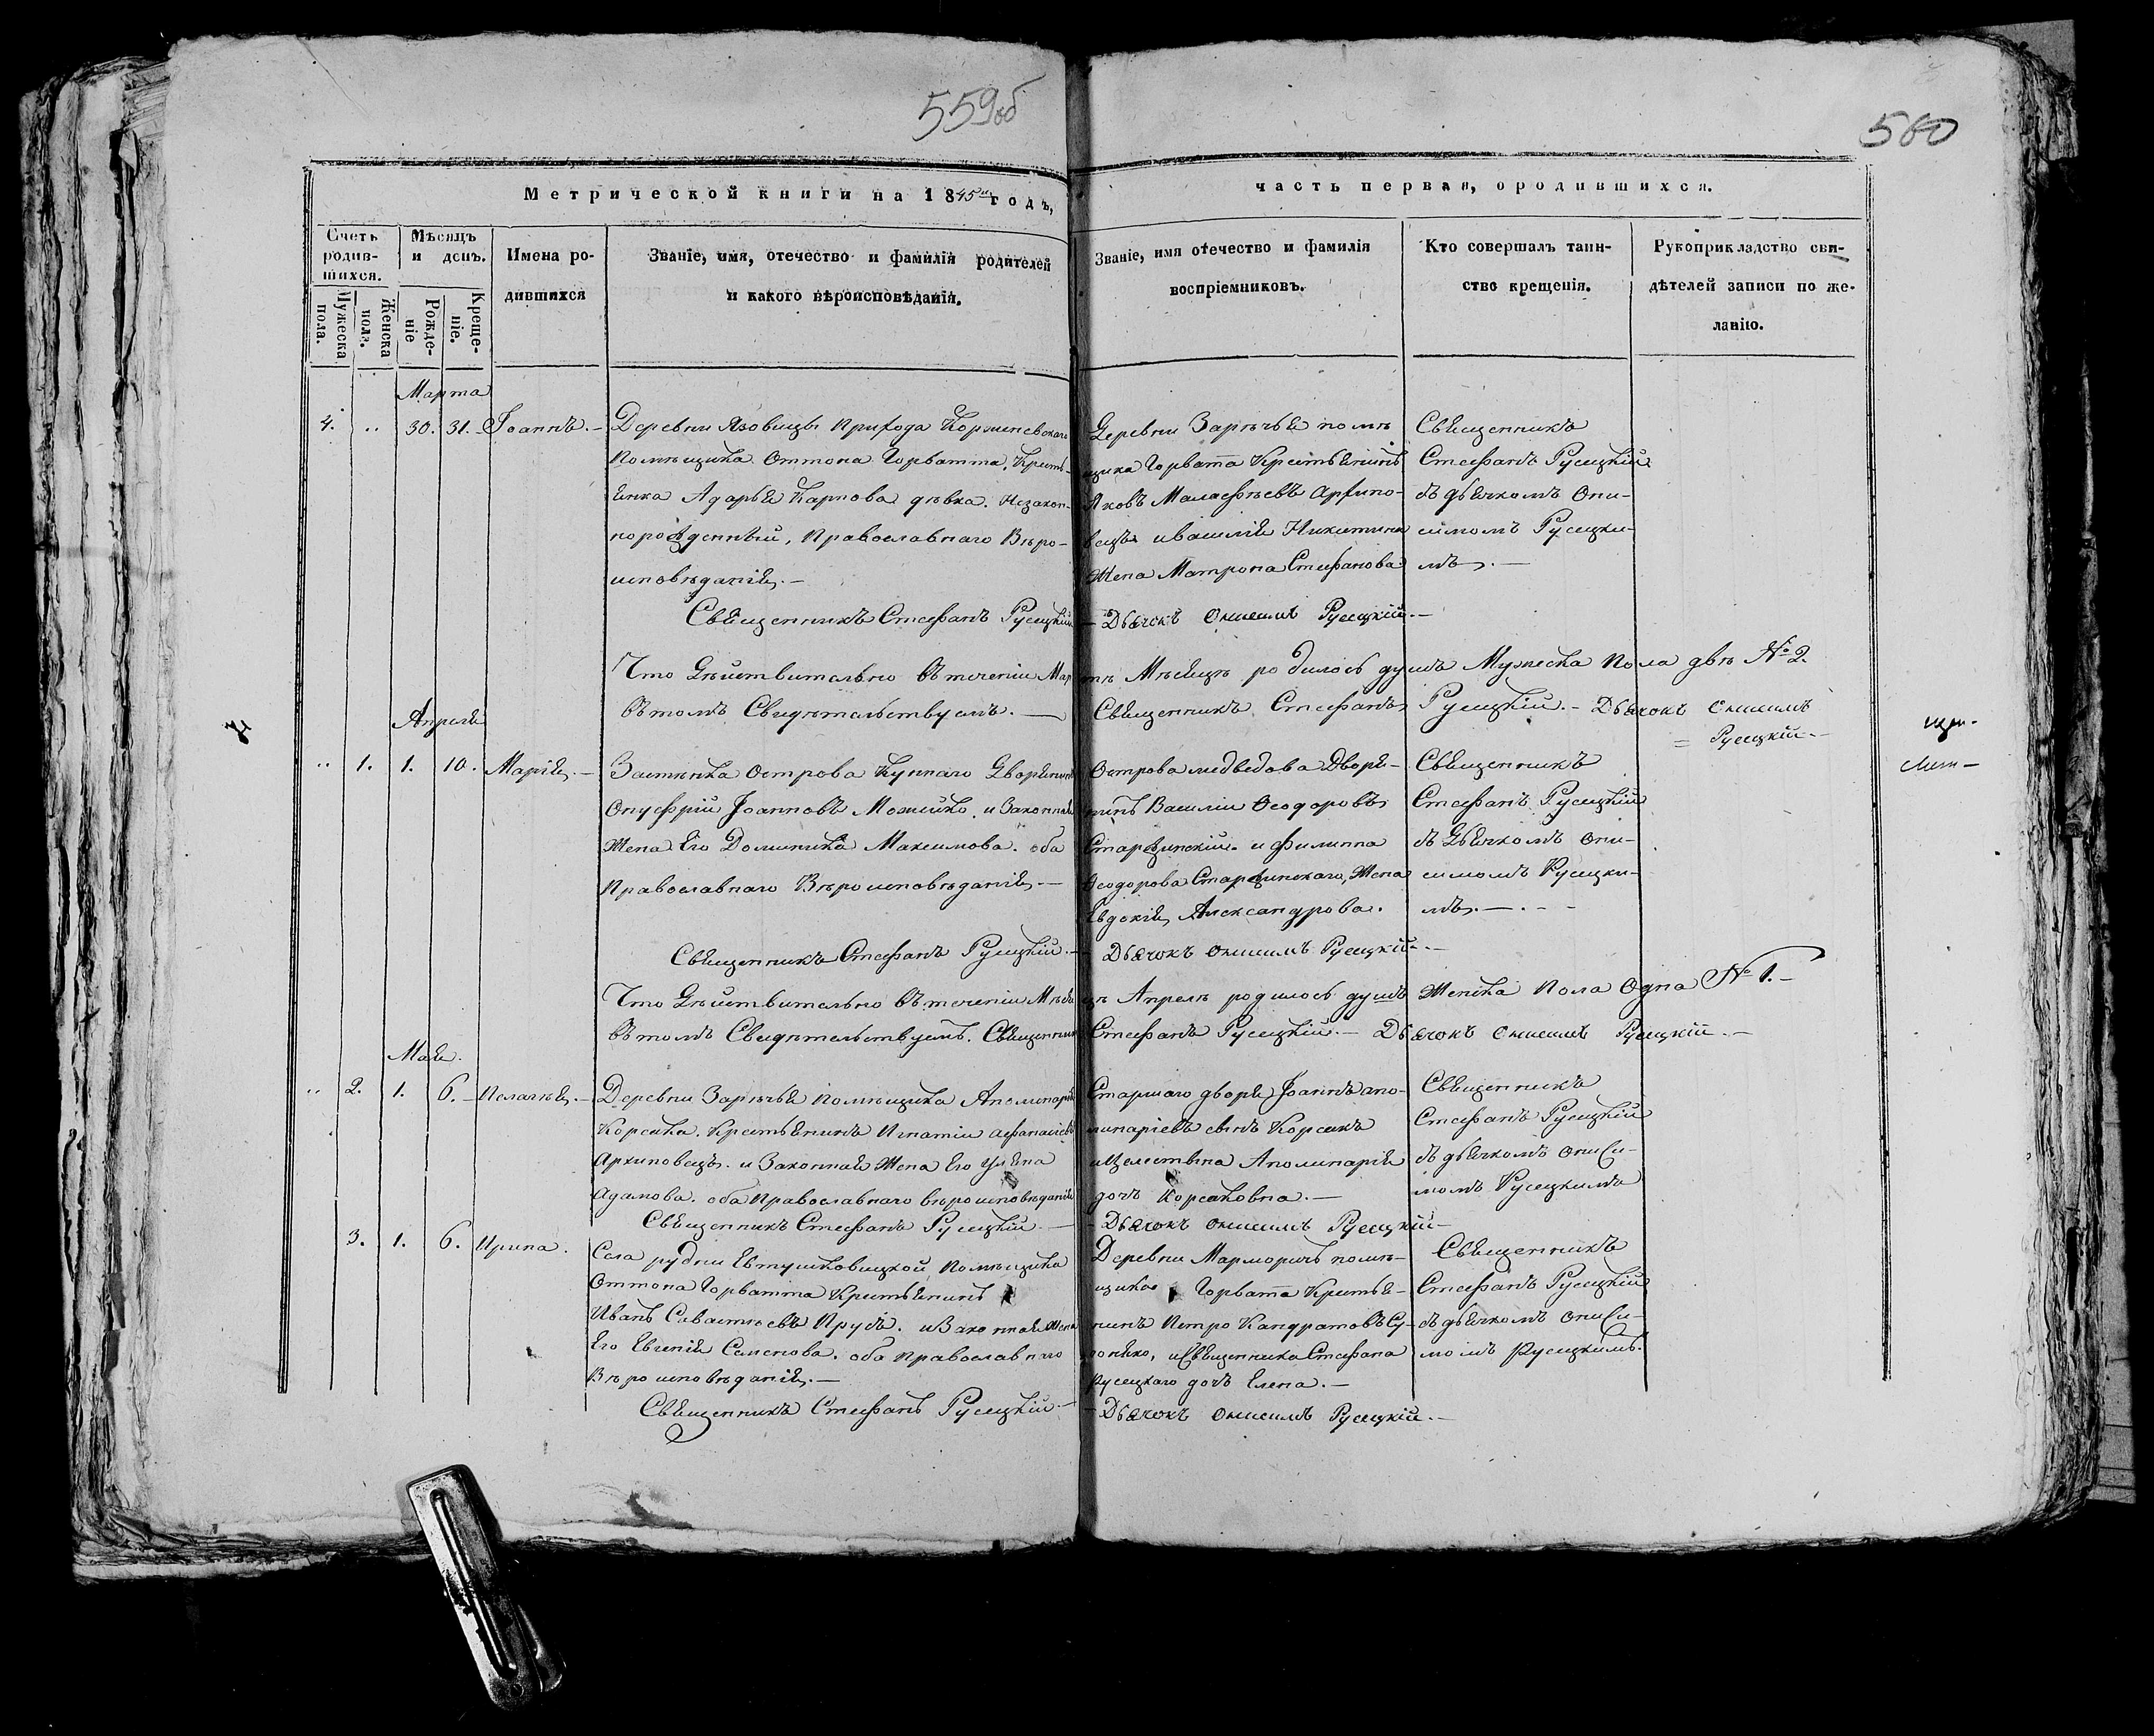 559об
560
Метрической книги на 1845й годъ,
часть первая, ородившихся.
Счетъ родив-шихся.
Мужеска пола.
Женска пола.
Мѣсяцъ и день.
Рожде-ніе
Креще-ніе.
Имена ро-
дившихся
Званіе, имя, отечество и фамилія родителей
и какого вѣроисповѣданія.
Званіе, имя отечество и фамилія
воспріемниковъ.
Кто совершалъ таин-
ство крещенія.
Рукоприкладство сви-
дѣтелей записи по же-
ланію.
Марта
4. „ 30. 31. Іоаннъ. –
Деревни Язовицы прихода Корженевскаго
Помѣщика Оттона Горватта, Крестъ-
янка Адарья Карпова дѣвка. Незакон-
норожденный, Православнаго Вѣро-
исповѣданія. –
Деревни Зарѣчья помѣ
щика Горвата Крестьянинъ
Яковъ Малафѣевъ Архипо-
вецъ иВасилія Никитина
Жена Матрона Стефанова
Священникъ
Стефанъ Русецкій
съ дьячкомъ Они-
симомъ Русецки-
мъ. –
Священникъ Стефанъ Русецкій – Дьячокъ Онисимъ Русецкій. –
Что Дѣйствительно Въ теченіи Мартѣ Мѣсяцѣ родилось душъ Мужеска Пола двѣ № 2.
Въ томъ Свидѣтельствуемъ. – Священникъ Стефанъ Русецкій. – Дьячокъ Онисимъ
= Русецкій. –
Апреля
„ 1. 1. 10. Марія. –
Застѣнка Острова Купнаго Дворянинъ
Онуфрій Іоанновъ Можейко. и Законная
Жена Его Доминика Максимова. оба
Православнаго Вѣроисповѣданія. –
Острова медведова Дворя-
нинъ Василіи Ѳеодоровъ
Старжинскій. и Филиппа
Ѳеодорова Старжинскаго, Жена
Евдокія, Александрова.
Священникъ
Стефанъ Русецкій
съ Дьячкомъ Они-
симомъ Русецки-
мъ. –
Священникъ Стефанъ Русецкій. – Дьячокъ Онисимъ Русецкій. –
Что Дѣйствительно Въ теченіи Мѣсяцѣ Апрелѣ родилось душъ Женска Пола Одна № 1. –
Въ томъ Свидѣтельствуемъ. Священникъ Стефанъ Русецкій. – Дьячокъ Онисимъ Русецкій. –
Мая.
„ 2. 1. 6. Пелагѣя. –
Деревни Зарѣчья Помѣщика Аполинарія
Корсака. Крестьянинъ Игнатіи Афанасіевъ
Архиповецъ. и Законная Жена Его Ульяна
Адамова. оба Православнаго вѣроисповѣданія
Стараго двора Іоаннъ апо-
линаріевъ сынъ Корсакъ
иЦелестына Аполинарія
дочъ Корсаковна. –
Священникъ
Стефанъ Русецкій
съ дьячкомъ Ониси-
момъ Русецкимъ
Священникъ Стефанъ Русецкій – Дьячокъ Онисимъ Русецкій –
3. 1. 6. Ирина.
Села рудни Евтушковицкой, Помѣщика
Оттона Горватта Крестьянинъ
Иванъ Саватѣевъ Прудъ. иЗаконная Жена
Его Евгенія Семенова. оба Православнаго
Вѣроисповѣданія. –
Деревни Марморичъ помѣ-
щика Горвата Крестья-
нинъ Петро Кандратовъ Су-
понько, иСвященника Стефана
Русецкаго дочъ Елена. –
Священникъ
Стефанъ Русецкій
съ дьячкомъ Ониси-
момъ Русецкимъ.
Священникъ Стефанъ Русецкій. – Дьячокъ Онисимъ Русецкій. –